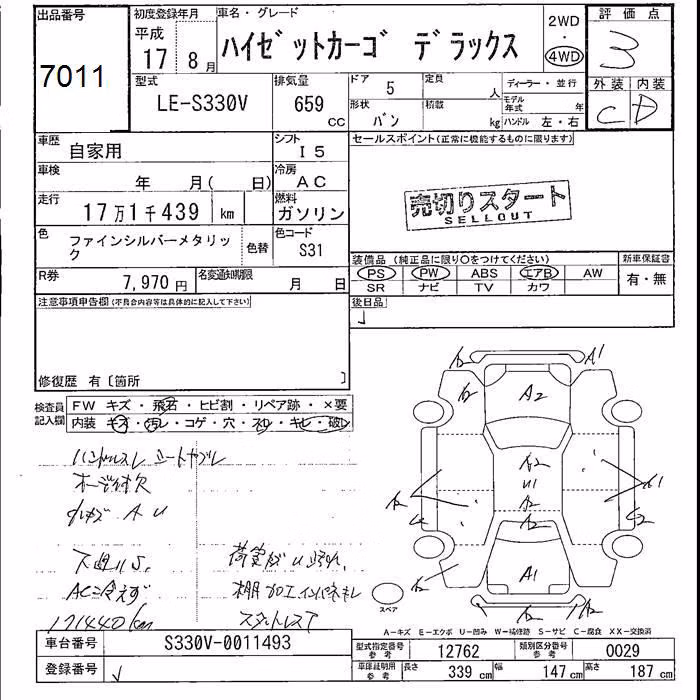 出品番号 初度登録年月 車名・グレード 評価点
7011 平成 17年 8月 ハイゼットカーゴ デラックス 2WD ・ 4WD 3
型式 LE-S330V 排気量 659 cc ドア 5 定員 人 ディーラー・並行 外装 C 内装 D
形状 バン 積載 kg モデル年式 年 ハンドル 左・右
車歴 自家用 シフト I5 セールスポイント(正常に機能するものに限ります)
車検 年 月( 日) 冷房 AC
走行 17万1千439 km 燃料 ガソリン 売切りスタート
SELLOUT
色 ファインシルバーメタリック 色替 色コード S31
装備品(純正品に限り○をつけてください) 新車保証書
R券 7,970円 名変通知期限 月 日 PS PW ABS エアB AW 有・無
SR ナビ TV カワ
注意事項申告欄(不具合内容等は具体的に記入して下さい) 後日品
修復歴 有〔箇所 〕
検査員記入欄 FW キズ・飛石・ヒビ割・リペア跡・×要
内装・キズ・汚レ・コゲ・穴・スレ・キレ・破レ
A2 A1
A2
A2
U1
A2
A2
A1
ハンドルスレ シートヤブレ
下廻りS
ACに冷えず
171440km
スペア
A-キズ E-エクボ U-凹み W-補修跡 S-サビ C-腐食 XX-交換済
車台番号 S330V-0011493 型式指定番号 参考 12762 類別区分番号 参考 0029
登録番号 車庫証明用 参考 長さ 339 cm 幅 147 cm 高さ 187 cm